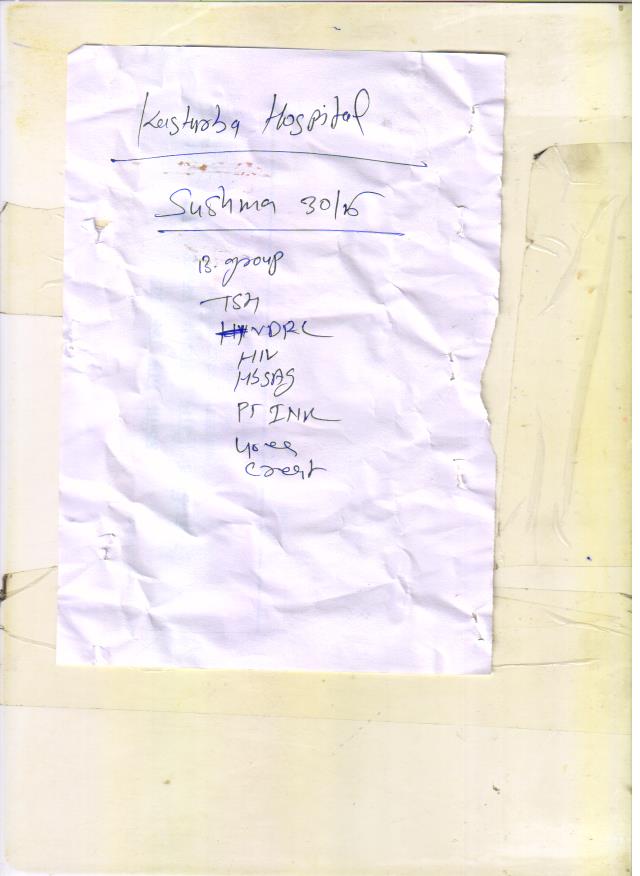 Kasturba Hospital
Sushma 30/
B. group
TSH
VDRL
HIV
HBSAG
PT INR
Urea
Creat